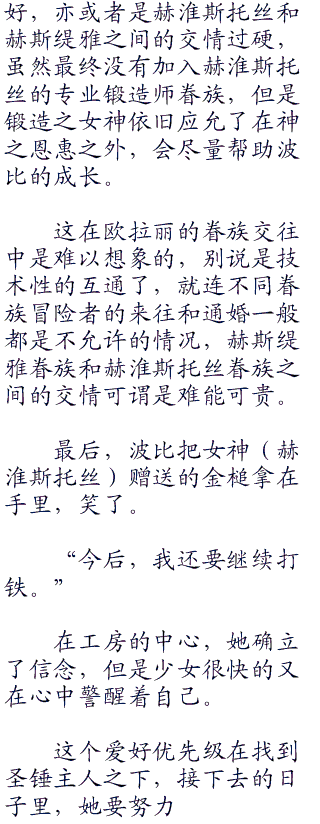 好，亦或者是赫淮斯托丝和
赫斯缇雅之间的交情过硬，
虽然最终没有加入赫淮斯托
丝的专业锻造师眷族，但是
锻造之女神依旧应允了在神
之恩惠之外，会尽量帮助波
比的成长。
这在欧拉丽的眷族交往
中是难以想象的，别说是技
术性的互通了，就连不同眷
族冒险者的来往和通婚一般
都是不允许的情况，赫斯缇
雅眷族和赫淮斯托丝眷族之
间的交情可谓是难能可贵。
最后，波比把女神（赫
淮斯托丝）赠送的金槌拿在
手里，笑了。
“今后，我还要继续打
铁。”
在工房的中心，她确立
了信念，但是少女很快的又
在心中警醒着自己。
这个爱好优先级在找到
圣锤主人之下，接下去的日
子里，她要努力